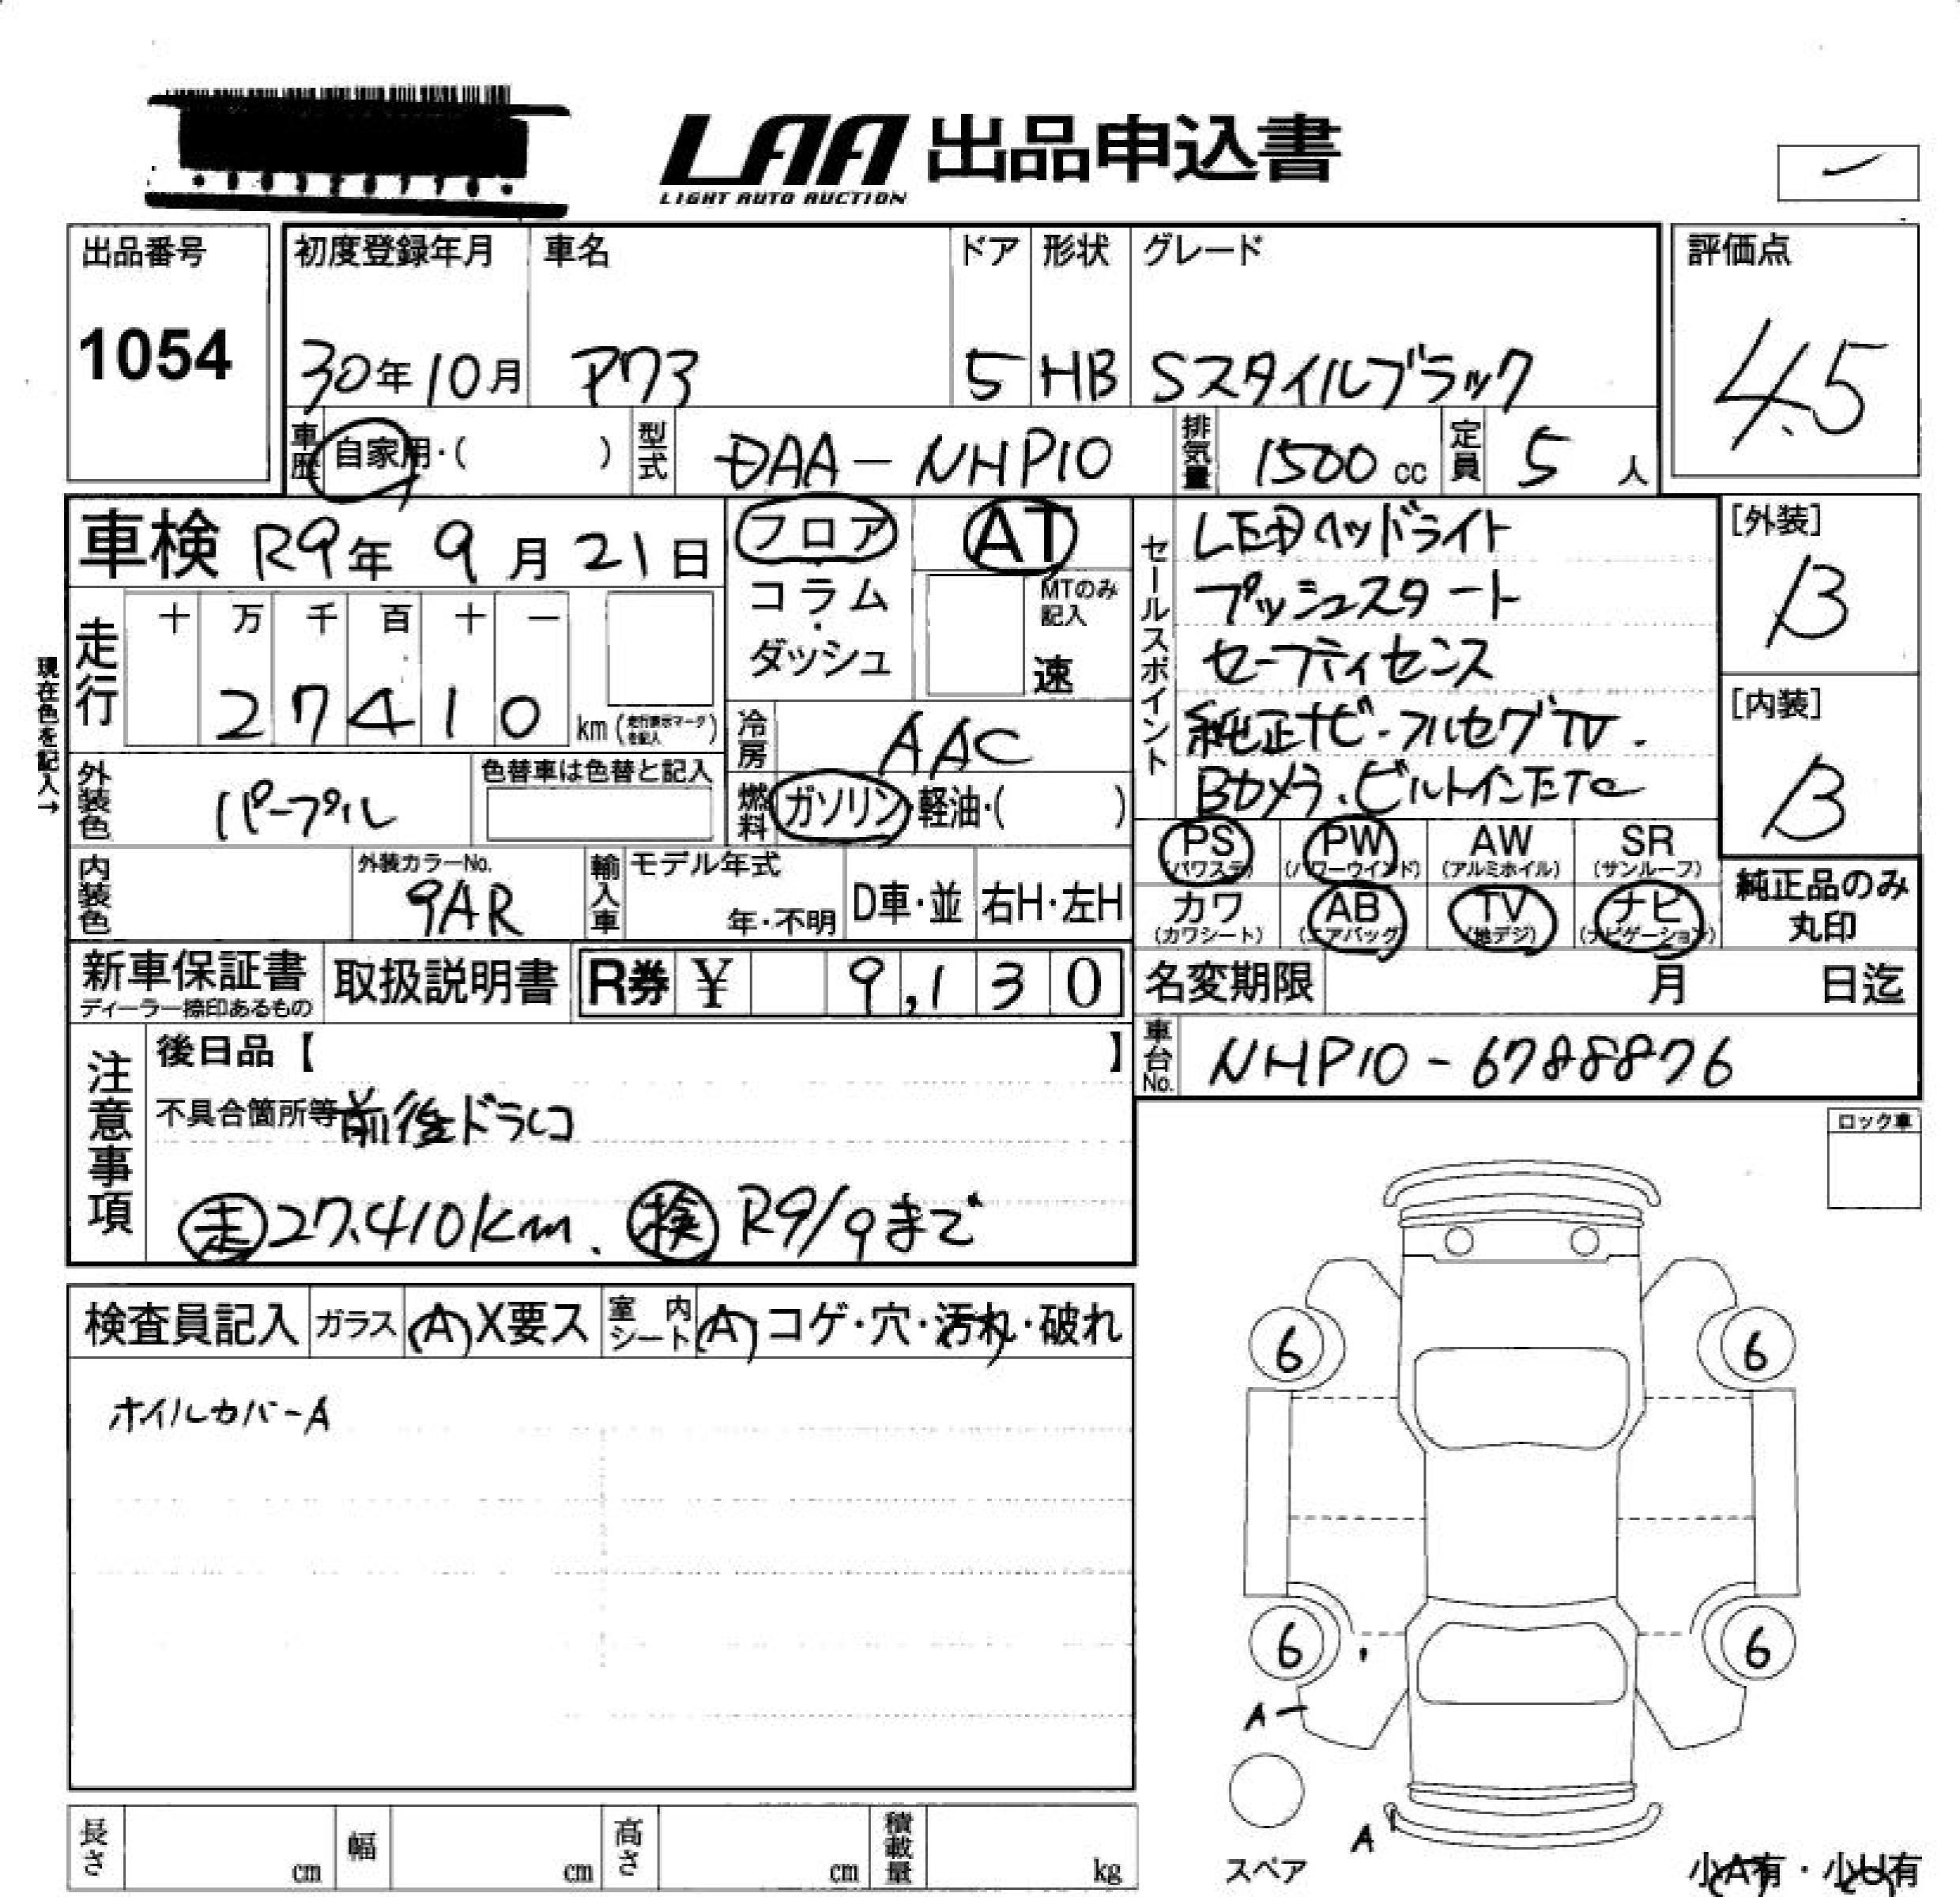 LAA 出品申込書
LIGHT AUTO AUCTION
出品番号
1054
初度登録年月 車名 ドア 形状 グレード
30年10月 アクア 5 HB Sスタイルブラック
評価点
4.5
車歴 自家用・( ) 型式 DAA-NHP10 排気量 1500 cc 定員 5 人
車検 R9年 9月 21日
フロア AT
コラム・ダッシュ
MTのみ記入
速
現在色を記入→
走行 十 万 千 百 十 一
27410 km (走行表示マークを記入)
冷房 AAC
外装色 パープル 色替車は色替と記入
燃料 ガソリン・軽油・( )
内装色 外装カラーNo. 9AR
輸入車 モデル年式 年・不明 D車・並 右H・左H
セールスポイント
LEDヘッドライト
プッシュスタート
セーフティセンス
純正ナビ・フルセグTV.
Bカメラ.ビルトインETC
[外装]
B
[内装]
B
PS (パワステ) PW (パワーウインド) AW (アルミホイル) SR (サンルーフ)
カワ (カワシート) AB (エアバッグ) TV (地デジ) ナビ (ナビゲーション)
純正品のみ
丸印
新車保証書 取扱説明書 R券 ¥ 9,130
ディーラー捺印あるもの
名変期限 月 日迄
車台No. NHP10-6788876
注意事項
後日品【 】
不具合箇所等 前後ドラレコ
走 27.410km. 検 R9/9まで
ロック車
検査員記入 ガラス A X要ス 室内シート A コゲ・穴・汚れ・破れ
ホイルカバーA
6 6
6 6
A
A
スペア
小A有・小U有
長さ cm 幅 cm 高さ cm 積載量 kg